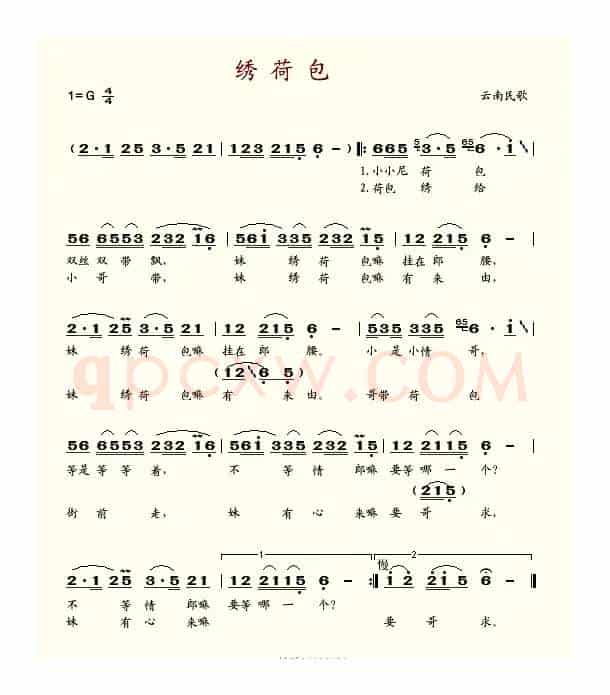 绣荷包
1=G 4/4 云南民歌
(2·1 25 3·5 21 | 123 2215 6 -) |: 665 5 3·5 65 6·i | 
1.小小尼荷包
2.荷包绣给
56 6553 232 16 | 56i 335 232 15 | 12 215 6 - |
双丝双带飘，妹绣荷包嘛挂在郎腰，
小哥带，妹绣荷包嘛有来由，
2·1 25 3·5 21 | 12 2215 6 - | 535 3535 65 6·i |
妹绣荷包嘛挂在郎腰。小是小情哥，
(12 6 5)
妹绣荷包嘛有来由。哥带荷包
qpcxw.COM
56 6553 232 16 | 56i 335 232 15 | 12 2115 6 - |
等是等等着，不等情郎嘛要等哪一个？
(215)
街前走，妹有心来嘛要哥求，
1 2
慢
2·1 25 3·5 21 | 12 2115 6 - :| i 2 2i5 6 - ||
不等情郎嘛要等哪一个？
妹有心来嘛要哥求。